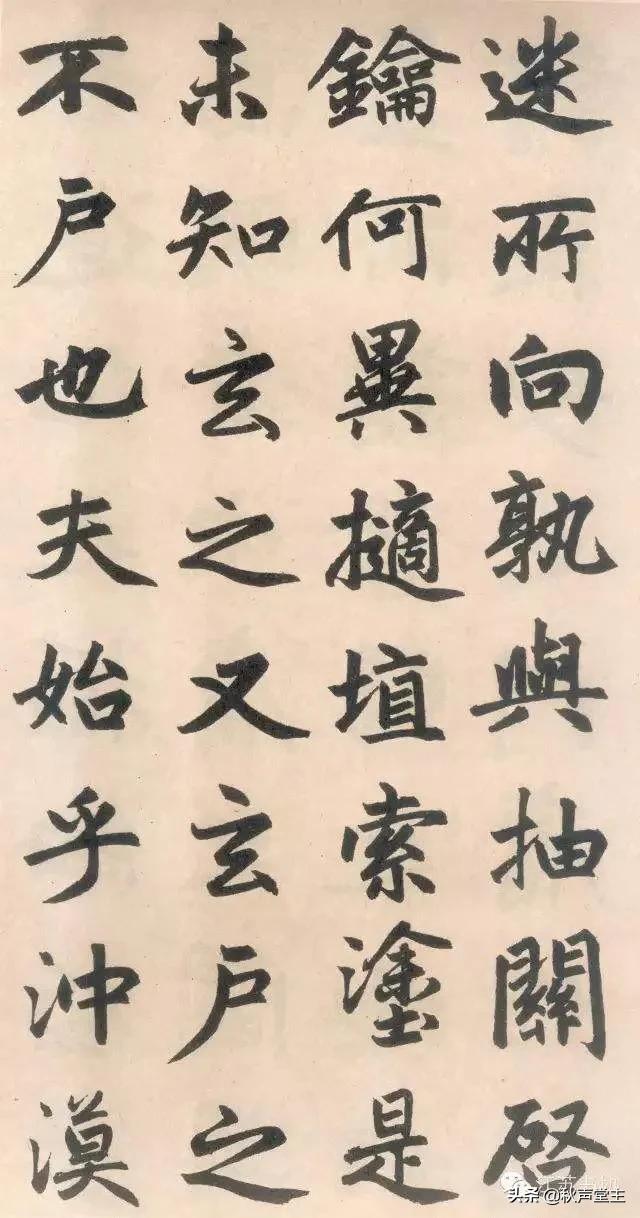 迷所向孰與抽關啓
鑰何異擿埴索塗是
未知玄之又玄户之
不户也夫始乎沖漠
头条 @秋声堂主